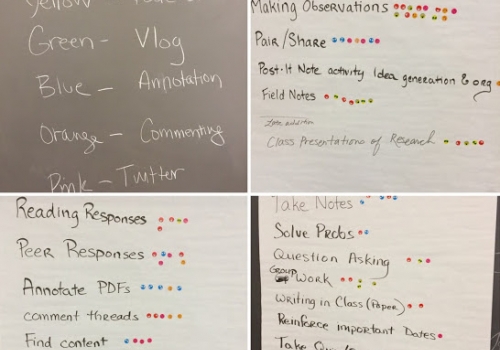 Yellow
Green - Vlog
Blue - Annotation
Orange - Commenting
Pink - Twitter
Making Observations
Pair/Share
Post-It Note activity Idea generation & org
Field Notes
Class Presentations of Research
Reading Responses
Peer Responses
Annotate PDFs
comment threads
Find content
Take Notes
Solve Probs
Question Asking
Group Work
Writing in Class (Paper)
Reinforce important Dates
Take